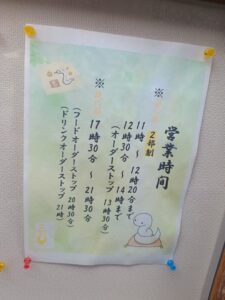 営業時間
2部制
11時 ～ 12時20分まで
12時30分 ～ 14時まで
(オーダーストップ 13時30分)
※
17時30分 ～ 21時30分
(フードオーダーストップ 20時30分)
(ドリンクオーダーストップ 21時)